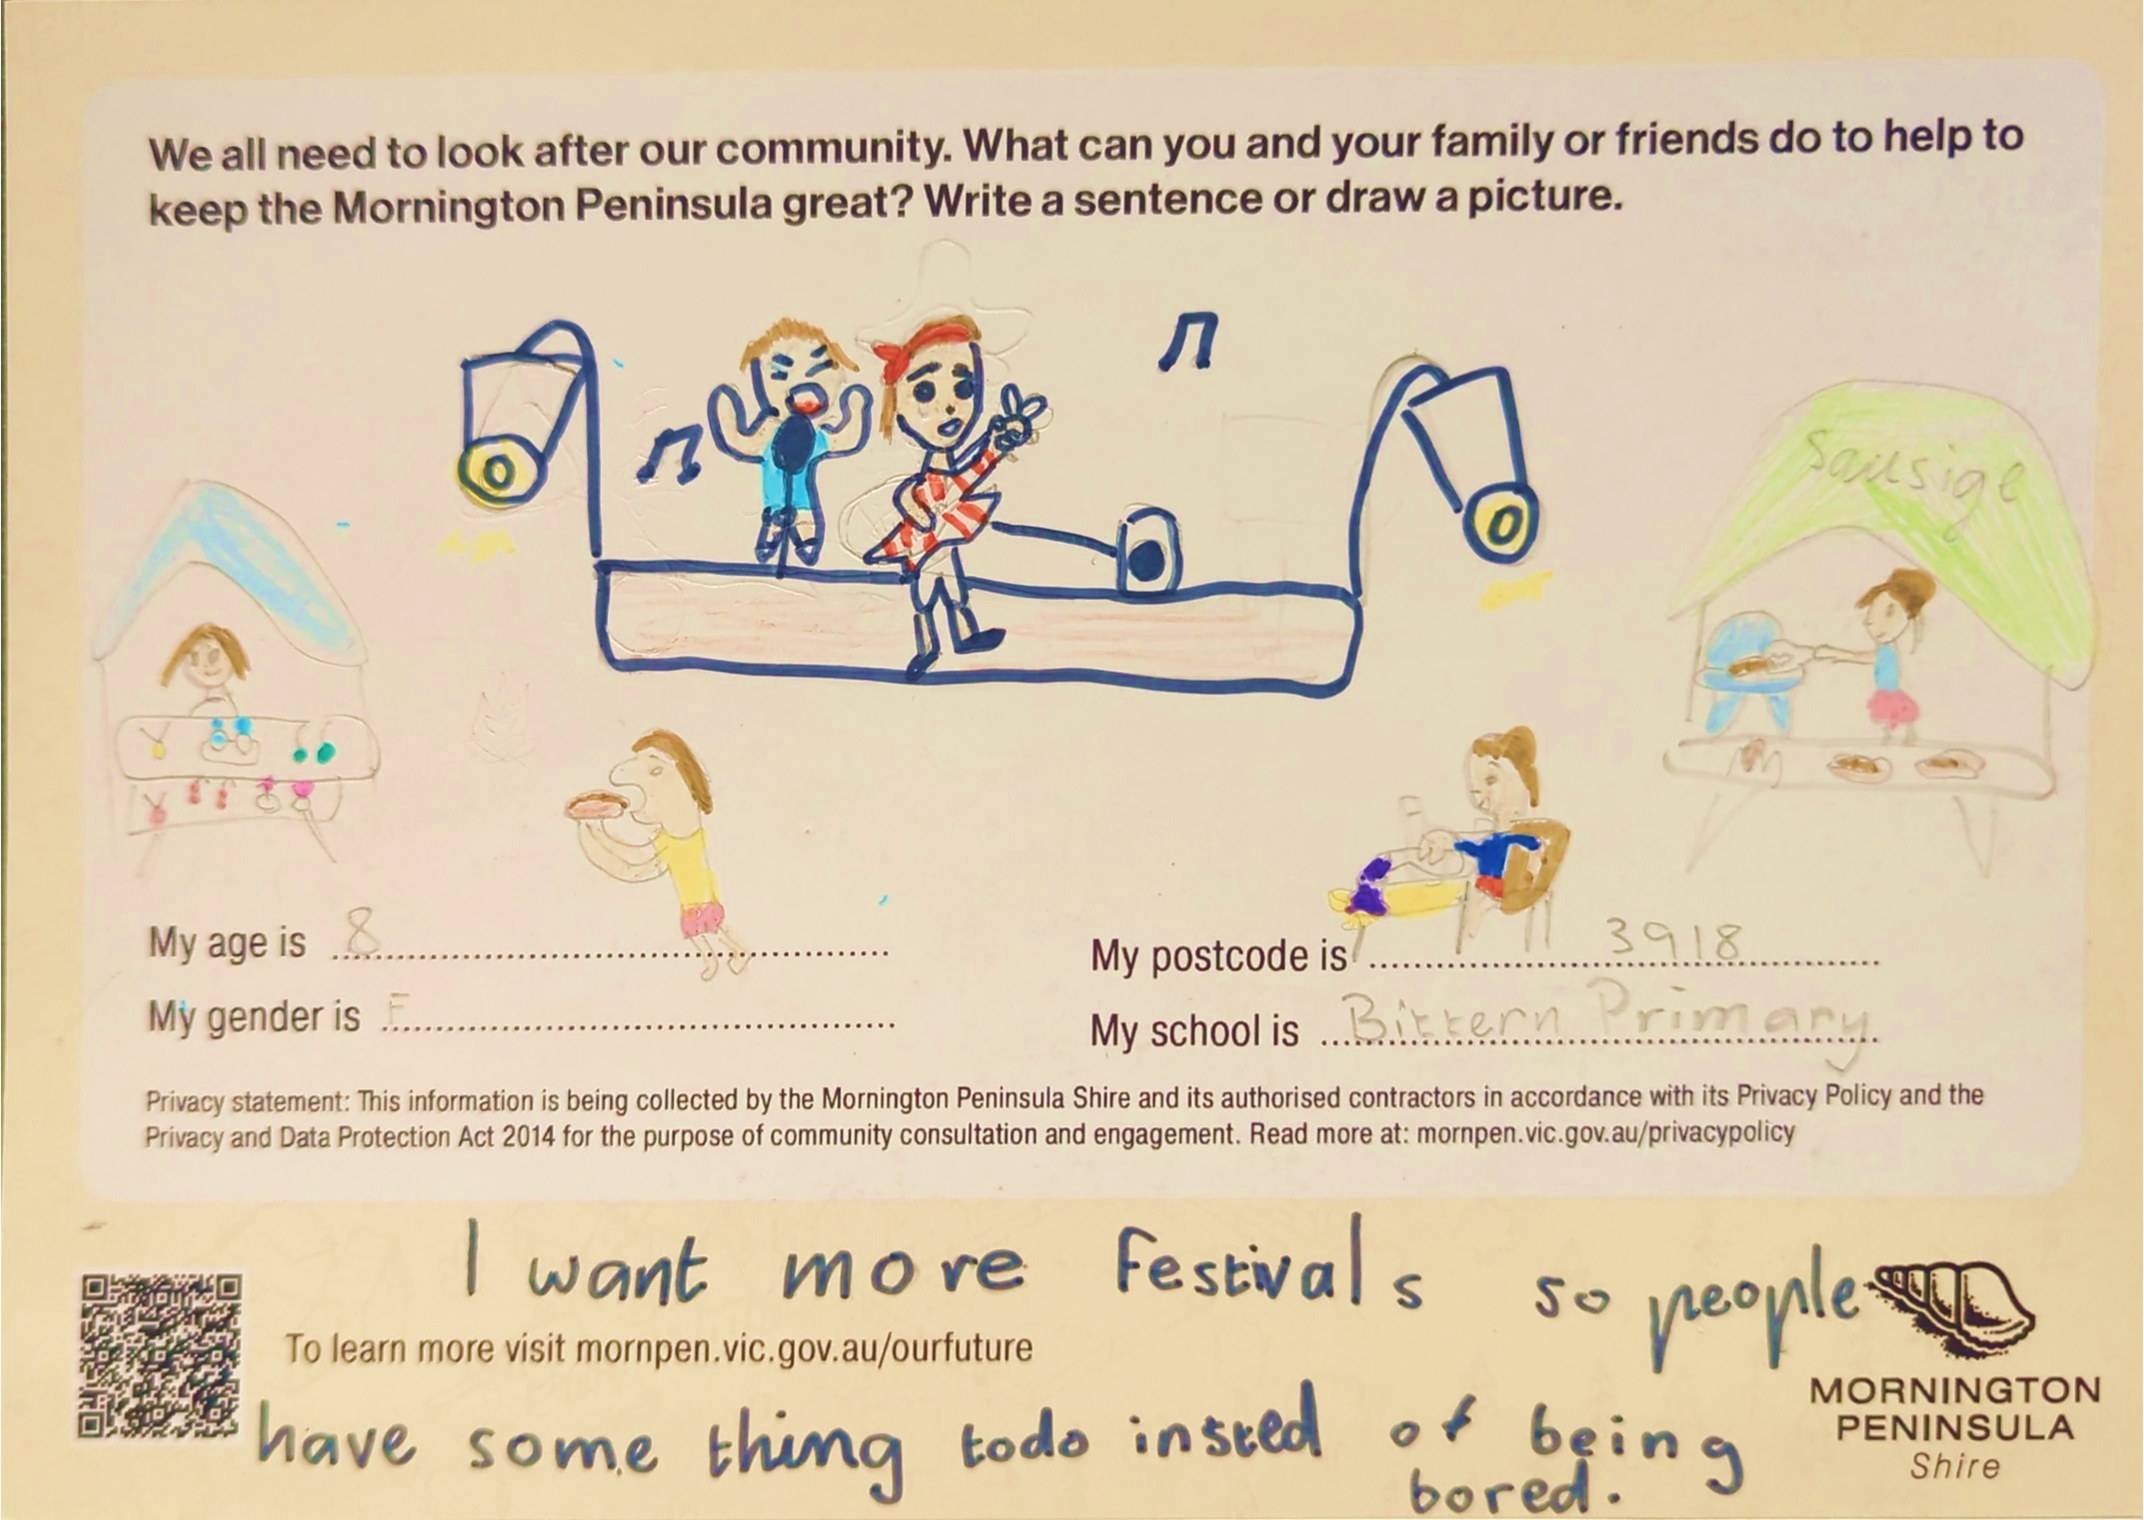 We all need to look after our community. What can you and your family or friends do to help to
keep the Mornington Peninsula great? Write a sentence or draw a picture.
Sausige
My age is 8
My postcode is 3918
My gender is F
My school is Bittern Primary
Privacy statement: This information is being collected by the Mornington Peninsula Shire and its authorised contractors in accordance with its Privacy Policy and the
Privacy and Data Protection Act 2014 for the purpose of community consultation and engagement. Read more at: mornpen.vic.gov.au/privacypolicy
I want more festivals so people
To learn more visit mornpen.vic.gov.au/ourfuture
have some thing todo insted of being
bored.
MORNINGTON
PENINSULA
Shire